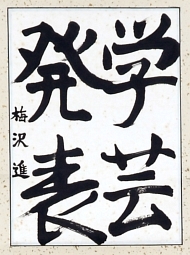 学芸
発表
梅沢進